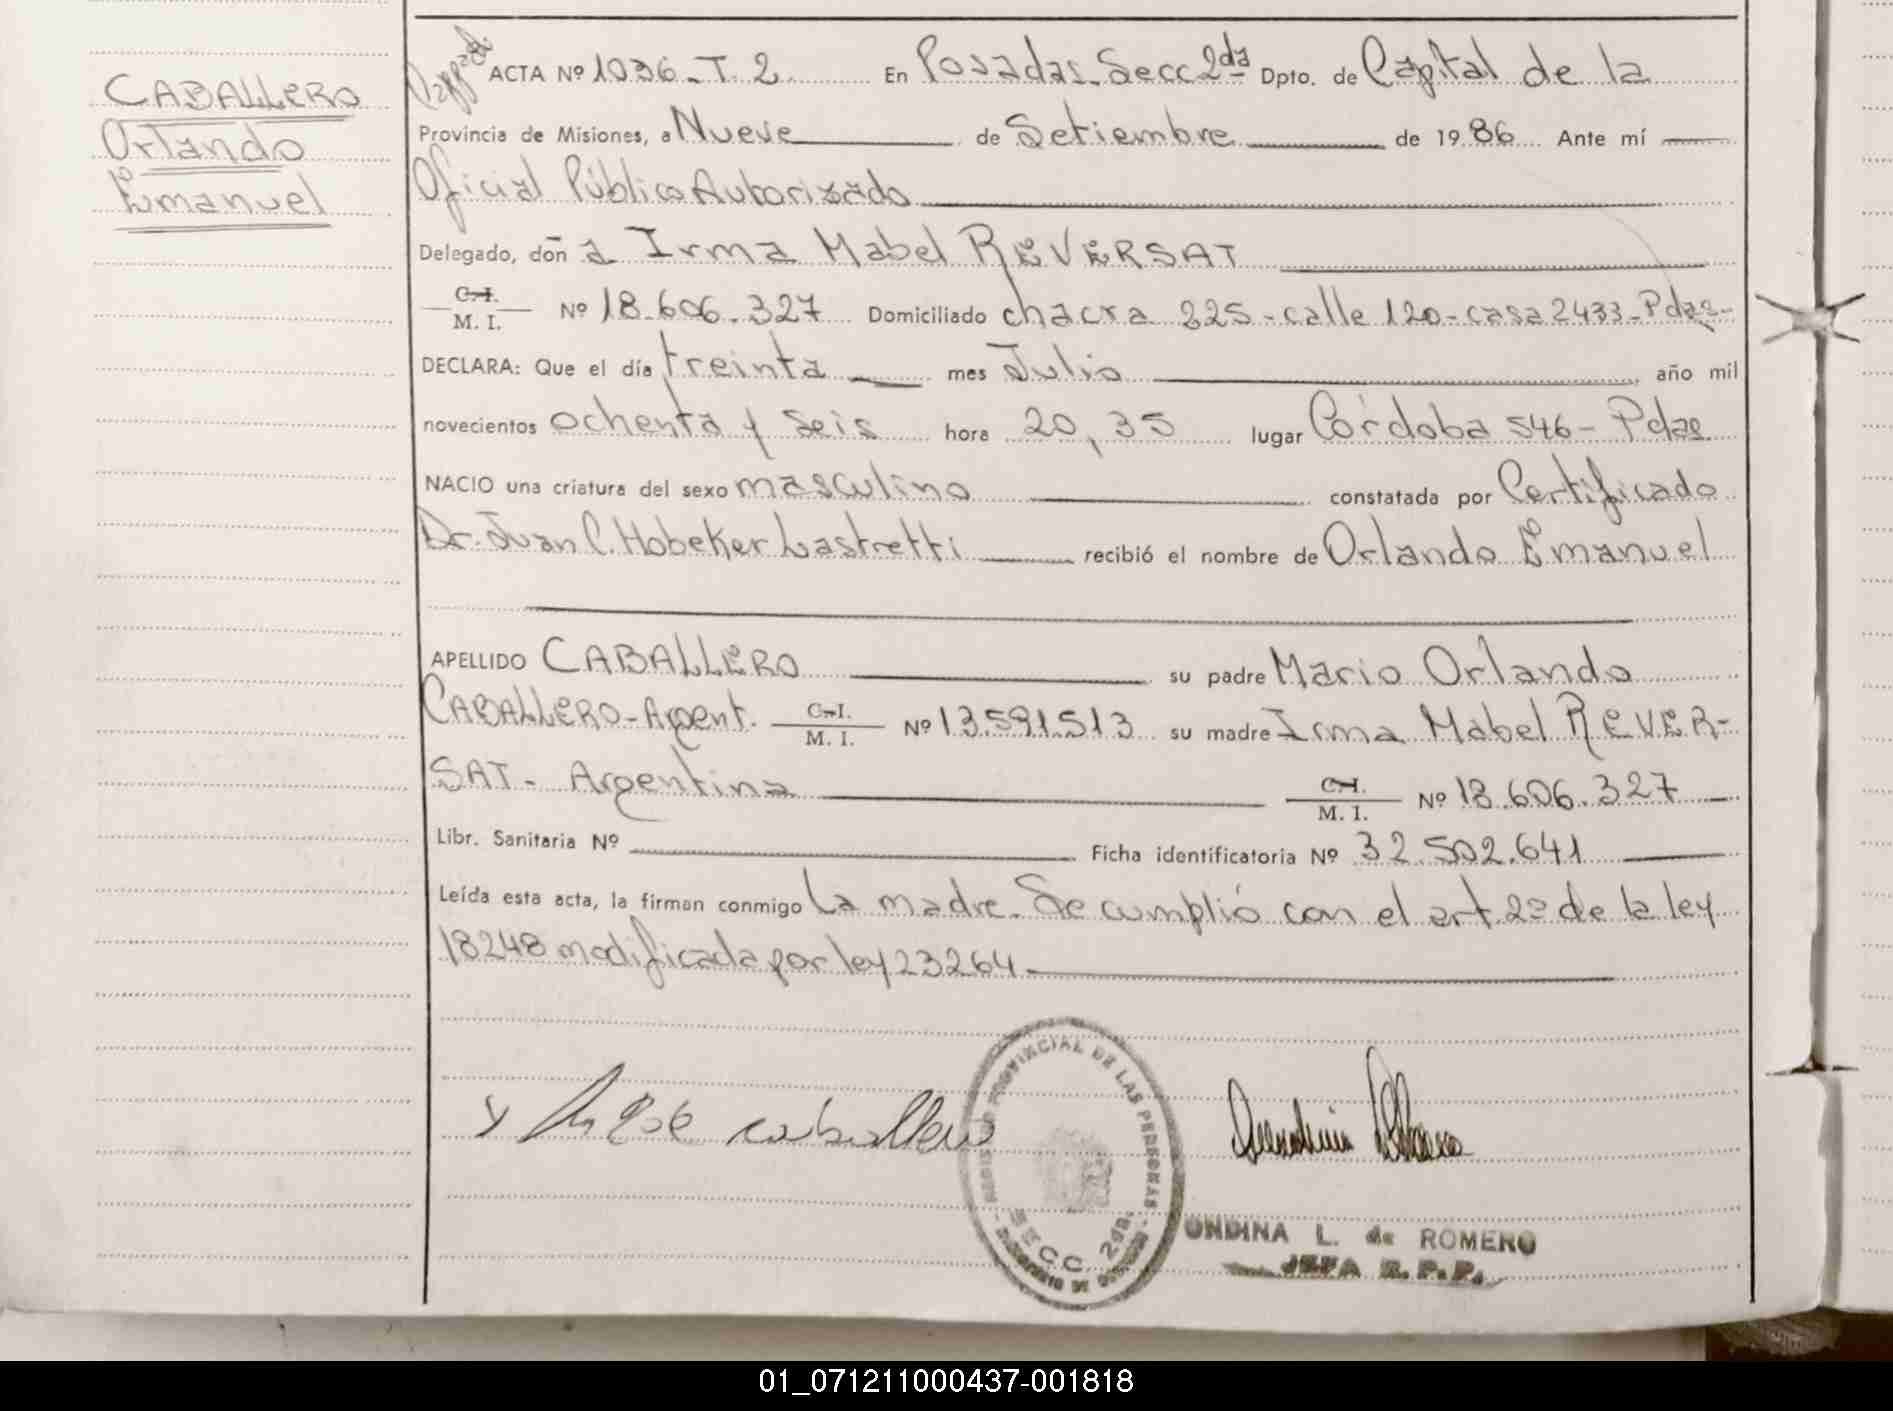 CABALLERO
Orlando
Emanuel
ACTA Nº 1036-T.2 En Posadas-Secc 2da Dpto. de Capital de la
Provincia de Misiones, a Nueve de Setiembre de 1986 Ante mí
Oficial Público Autorizado
Delegado, doña Irma Mabel REVERSAT
C.I. M. I. Nº 18.606.327 Domiciliado chacra 225-calle 120-casa 2433-Pdas-
DECLARA: Que el día treinta mes Julio año mil
novecientos ochenta y seis hora 20,35 lugar Córdoba 546-Pdas
NACIO una criatura del sexo masculino constatada por Certificado
Dr. Juan C. Hobeker Lastretti recibió el nombre de Orlando Emanuel
APELLIDO CABALLERO su padre Mario Orlando
CABALLERO-Argent. C.I. M. I. Nº 13.591.513 su madre Irma Mabel REVER-
SAT- Argentina C.I. M. I. Nº 18.606.327
Libr. Sanitaria Nº Ficha identificatoria Nº 32.502.641
Leída esta acta, la firman conmigo La madre. Se cumplió con el art. 2º de la ley
18248 modificada por ley 23264
x caballero
REGISTRO PROVINCIAL DE LAS PERSONAS
SECC 2da.
ONDINA L. de ROMERO
JEFA R.P.P.
01_071211000437-001818